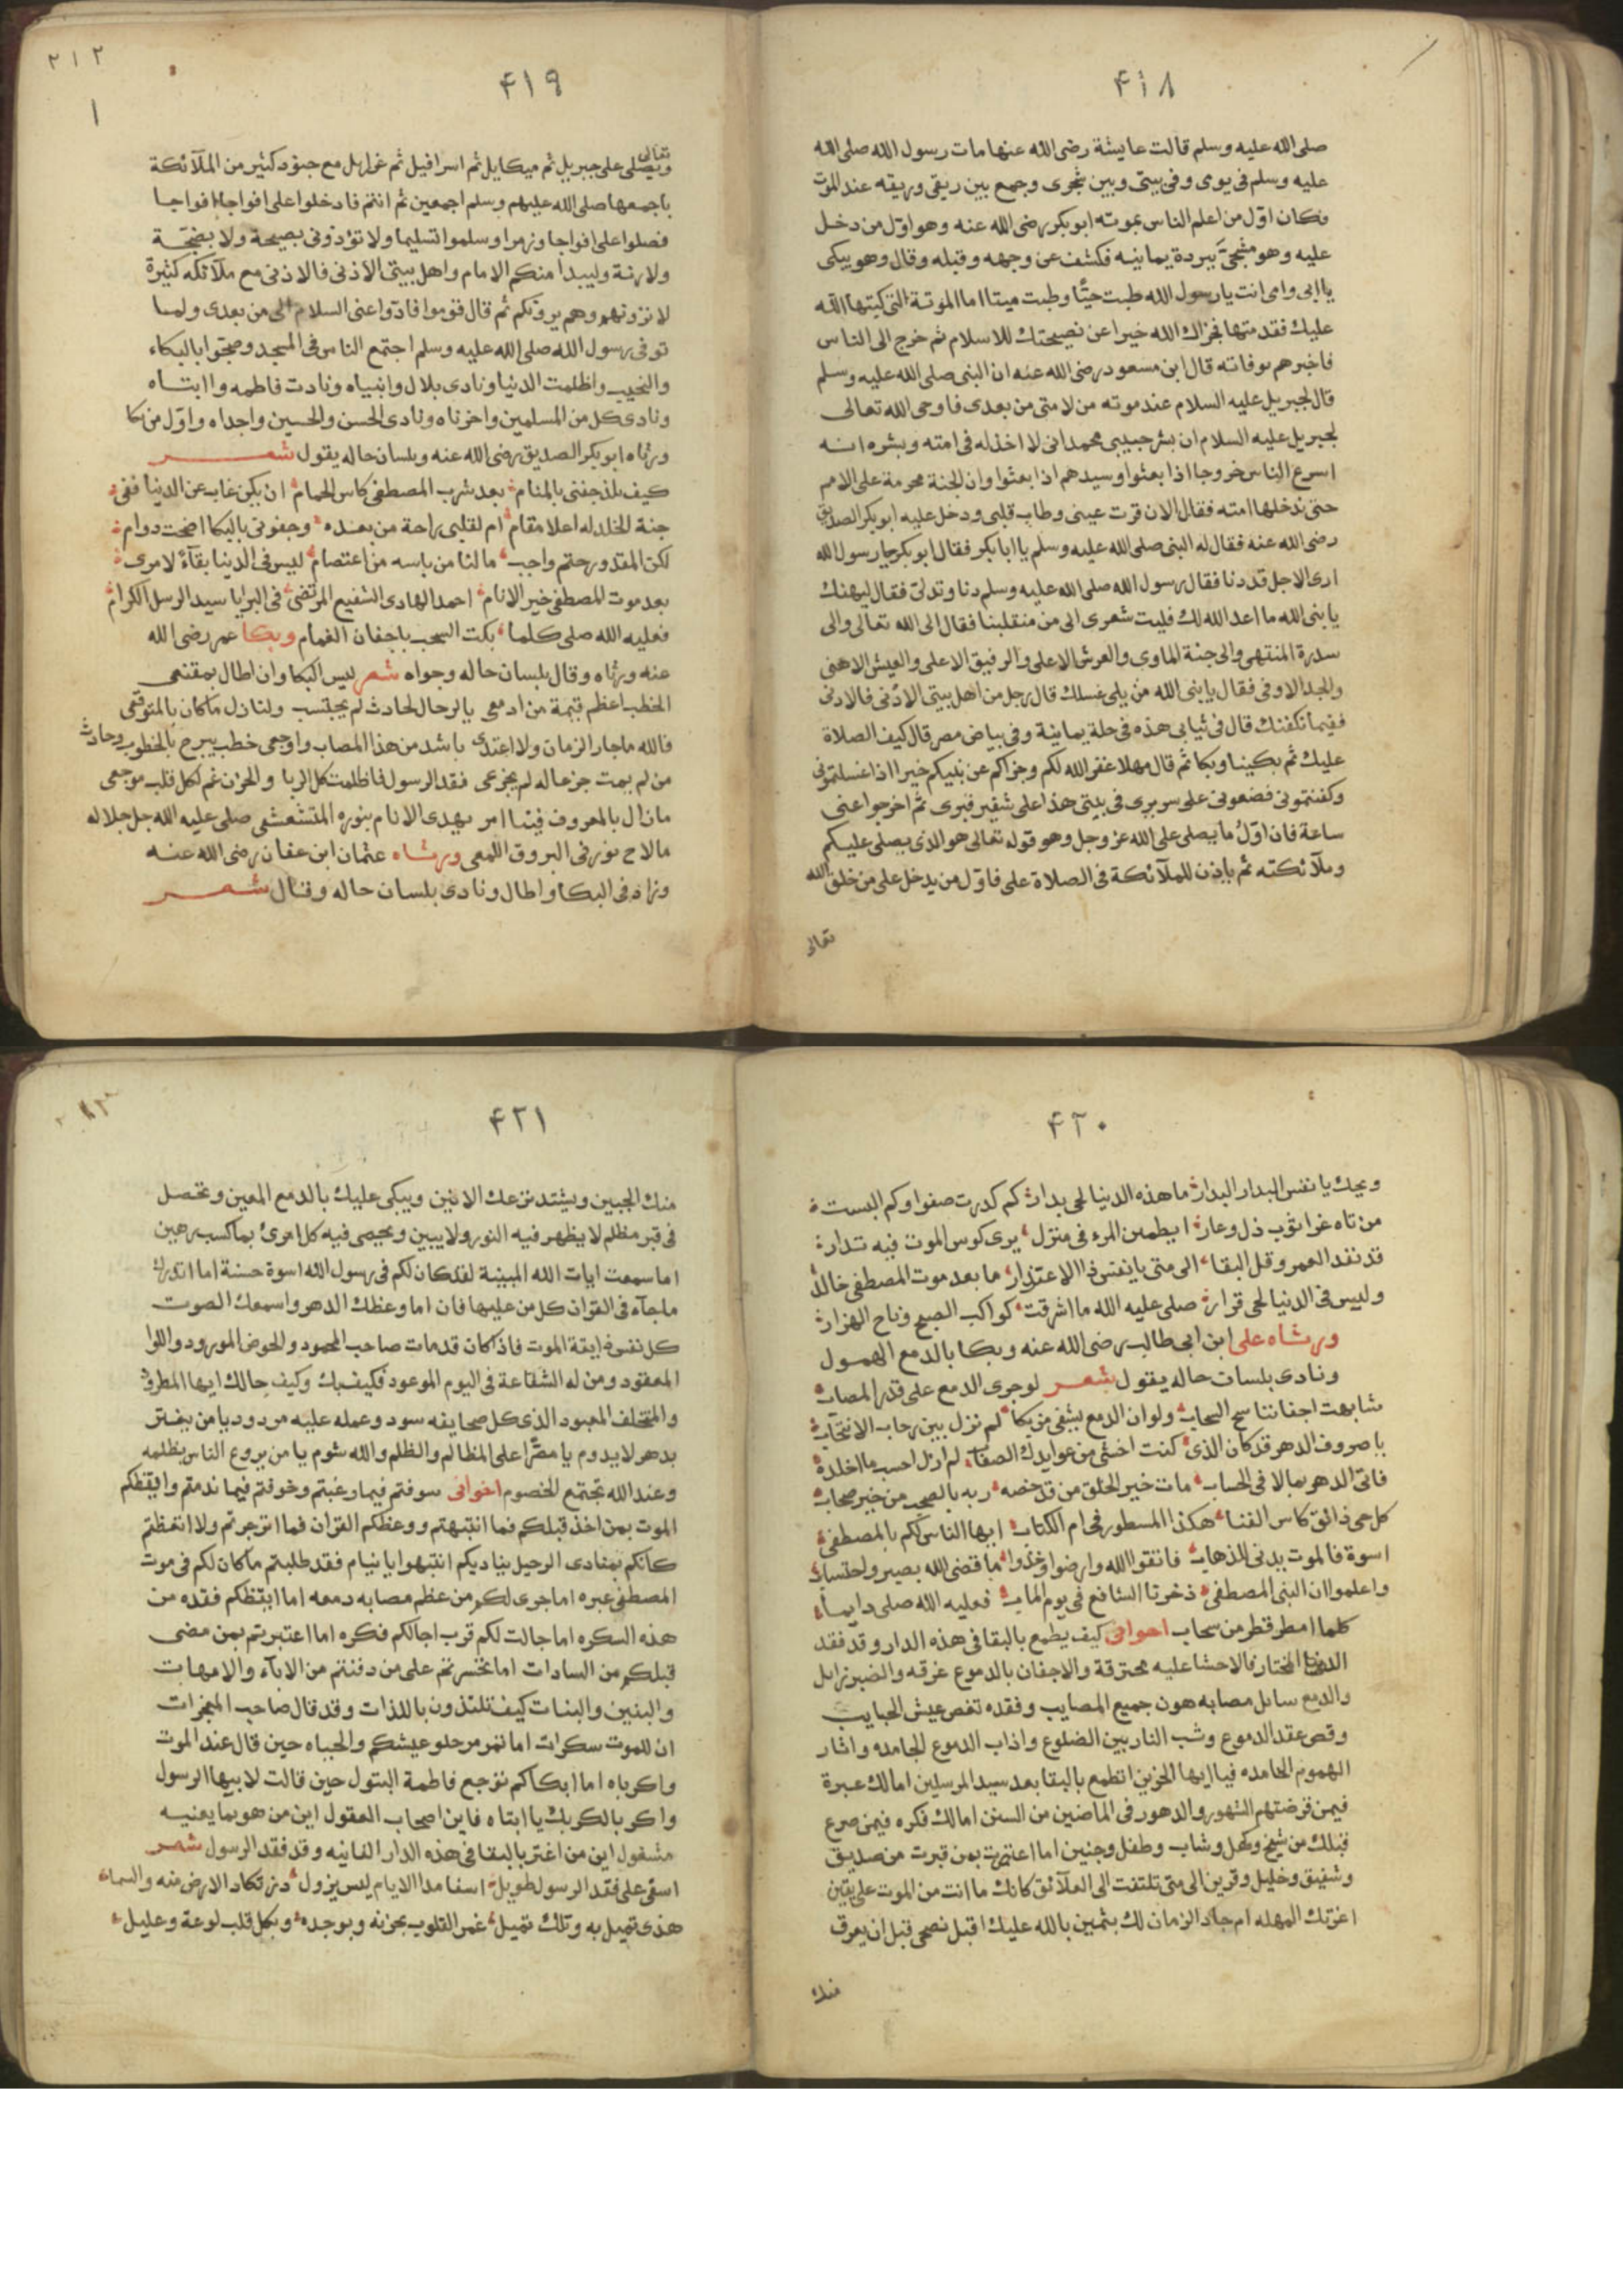 ٤١٨
صلى الله عليه وسلم قالت عايشة رضى الله عنها مات رسول الله صلى الله
عليه وسلم فى يومى وفى بيتى وبين نحرى وجمع بين ريقى وريقه عند الموت
فكان اول من اعلم الناس بموته ابو بكر رضى الله عنه وهو اول من دخل
عليه وهو مسجى ببردة يمانيه فكشف عن وجهه وقبله وقال وهو يبكى
يا ابى وامى انت يا رسول الله طبت حيا وطبت ميتا اما الموتة التى كتبها الله
عليك فقد متها فجزاك الله خيرا عن نصيحتك للاسلام ثم خرج الى الناس
فاخبرهم بوفاته قال ابن مسعود رضى الله عنه ان النبى صلى الله عليه وسلم
قال لجبريل عليه السلام عند موته من لامتى من بعدى فاوحى الله تعالى
لجبريل عليه السلام ان بشر حبيبى محمدا انى لا اخذله فى امته وبشره انه
اسرع الناس خروجا اذا بعثوا وسيدهم اذا بعثوا وان الجنة محرمة على الامم
حتى تدخلها امته فقال الان قرت عينى وطاب قلبى ودخل عليه ابو بكر الصديق
رضى الله عنه فقال له النبى صلى الله عليه وسلم يا ابا بكر فقال ابو بكر يا رسول الله
ارى الاجل قد دنا فقال رسول الله صلى الله عليه وسلم دنا وتدلى فقال ليهنك
يا نبى الله ما اعد الله لك فليت شعرى الى من منقلبنا فقال الى الله تعالى والى
سدرة المنتهى والى جنة الماوى والعرش الاعلى والرفيق الاعلى والعيش الاهنى
والجد الاوفى فقال يا نبى الله من يلى غسلك قال رجل من اهل بيتى الادنى فالادنى
ففيما نكفنك قال فى ثيابى هذه فى حلة يمانية وفى بياض مصر قال كيف الصلاة
عليك ثم بكينا وبكا ثم قال مهلا غفر الله لكم وجزاكم عن نبيكم خيرا اذا غسلتمونى
وكفنتمونى فضعونى على سريرى فى بيتى هذا على شفير قبرى ثم اخرجوا عنى
ساعة فان اول ما يصلى على الله عز وجل وهو قوله تعالى هو الذى يصلى عليكم
وملآئكته ثم ياذن للملآئكة فى الصلاة على فاول من يدخل على من خلق الله
تعالى
٢١٢
٤١٩
١
تعالى
ويصلى على جبريل ثم ميكايل ثم اسرافيل ثم عزرايل مع جنود كثير من الملآئكة
باجمعها صلى الله عليهم وسلم اجمعين ثم انتم فادخلوا على افواجا افواجا
فصلوا على افواجا وزمرا وسلموا تسليما ولا تؤذونى بصيحة ولا بضجة
ولا رنة وليبدا منكم الامام واهل بيتى الادنى فالادنى مع ملآئكه كثيرة
لا ترونهم وهم يرونكم ثم قال قوموا فادوا عنى السلام الى من بعدى ولما
توفى رسول الله صلى الله عليه وسلم اجتمع الناس فى المسجد وضجوا بالبكاء
والنحيب واظلمت الدنيا ونادى بلال وانبياه ونادت فاطمه واابتاه
ونادى كل من المسلمين واحزناه ونادى الحسن والحسين واجداه واول من بكا
ورثاه ابو بكر الصديق رضى الله عنه وبلسان حاله يقول شعر
كيف يلذ جفنى بالمنام بعد شرب المصطفى كاس الحمام ان يكن غاب عن الدنيا ففى
جنة الخلد له اعلا مقام ام لقلبى راحة من بعده وجفونى بالبكا اضحت دوام
لكن المقدور حتم واجب ما لنا من باسه من اعتصام ليس فى الدنيا بقآء لامرى
بعد موت المصطفى خير الانام احمد الهادى الشفيع المرتضى فى البرايا سيد الرسل الكرام
فعليه الله صلى كلما بكت السحب باجفان الغمام وبكا عمر رضى الله
عنه ورثاه وقال بلسان حاله وجواه شعر ليس البكا وان اطال بمقنعى
الخطب اعظم قيمة من ادمعى يا للرجال لحادث لم يحتسب ولنازل ما كان بالمتوقعى
فالله ما جار الزمان ولا اعتدى باشد من هذا المصاب واوجعى خطب يبرح بالخطوب وحادث
من لم يمت جزعا له لم يجزعى فقد الرسول فاظلمت كل الربا والحزن عم لكل قلب موجعى
ما زال بالمعروف فينا امر يهدى الانام بنوره المتشعشعى صلى عليه الله جل جلاله
ما لاح نور فى البروق اللمعى ورثاه عثمان ابن عفان رضى الله عنه
وزاد فى البكا واطال ونادى بلسان حاله وقال شعر
٤٢٠
ويحك يا نفس البدار البدار ما هذه الدنيا لحى بدار كم كدرت صفوا وكم البست
من تاه غرا ثوب ذل وعار ايطمئن المرء فى منزل يرى كوس الموت فيه تدار
قد نفد العمر وقل البقا الى متى يا نفس ذا الاعتذار ما بعد موت المصطفى خالد
وليس فى الدنيا لحى قرار صلى عليه الله ما اشرقت كواكب الصبح وناح الهزار
ورثاه على ابن ابى طالب رضى الله عنه وبكا بالدمع الهمول
ونادى بلسان حاله يقول شعر لو جرى الدمع على قدر المصاب
شابهت اجفاننا سح السحاب ولو ان الدمع يشفى من بكا لم نزل بين رحاب الانتحاب
يا صروف الدهر قد كان الذى كنت اخشى من عوايدك الصعاب لم ازل احسب ما اخلده
فاتى الدهر بما لا فى الحساب مات خير الخلق من قد خصه ربه بالصحب من خير صحاب
كل حى ذائق كاس الفنا هكذا المسطور فى ام الكتاب ايها الناس لكم بالمصطفى
اسوة فالموت يدنى للذهاب فاتقوا الله وارضوا وخذوا ما قضى الله بصبر واحتساب
واعلموا ان النبى المصطفى ذخرنا الشافع فى يوم الماب فعليه الله صلى دايما
كلما امطر قطر من سحاب اخوانى كيف يطمع بالبقا فى هذه الدار وقد فقد
المختار فالاحشا عليه محترقة والاجفان بالدموع غرقه والصبر زايل
والدمع سائل مصابه هون جميع المصايب وفقده نغص عيش الحبايب
وقص عقد الدموع وشب النار بين الضلوع واذاب الدموع الجامده واثار
الهموم الخامده فيا ايها الحزين اتطمع بالبقا بعد سيد المرسلين اما لك عبرة
فيمن قرضتهم الشهور والدهور فى الماضين من السنن اما لك فكره فيمن صرع
قبلك من شيخ وكهل وشاب وطفل وجنين اما اعتبرت بمن قبرت من صديق
وشفيق وخليل وقرين الى متى تلتفت الى العلآئق كانك ما انت من الموت على يقين
اغرتك المهله ام جاد الزمان لك بثمين بالله عليك اقبل نصحى قبل ان يعرق
منك
٤٢١
منك الجبين ويشتد نزعك الانين ويبكى عليك بالدمع المعين وتحصل
فى قبر مظلم لا يظهر فيه النور ولا يبين ويحصى فيه كل امرئ بما كسب رهين
اما سمعت ايات الله المبينة لقد كان لكم فى رسول الله اسوة حسنة اما انذرك
ما جآء فى القران كل من عليها فان اما وعظك الدهر واسمعك الصوت
كل نفس ذايقة الموت فاذا كان قد مات صاحب المحمود والحوض المورود واللوا
المعقود ومن له الشفاعة فى اليوم الموعود فكيف بك وكيف حالك ايها المطرود
والمتخلف المعبود الذى كل صحايفه سود وعمله عليه مردود يا من يغتر
بدهر لا يدوم يا مصرا على المظالم والظلم والله شوم يا من يروع الناس بظلمه
وعند الله تجتمع الخصوم اخوانى سوفتم فيما رغبتم وخوفتم فيما ندمتم وايقظكم
الموت بمن اخذ قبلكم فما انتبهتم ووعظكم القران فما انزجرتم ولا اتعظتم
كانكم بمنادى الرحيل يناديكم انتبهوا يا نيام فقد طلبتم ما كان لكم فى موت
المصطفى عبره اما جرى لكم من عظم مصابه دمعه اما ايقظكم فقده من
هذه السكره اما جالت لكم قرب اجالكم فكره اما اعتبرتم بمن مضى
قبلكم من السادات اما تحسرتم على من دفنتم من الابآء والامهات
والبنين والبنات كيف تلتذون باللذات وقد قال صاحب المعجزات
ان للموت سكرات اما تمرمر حلو عيشكم والحياه حين قال عند الموت
واكرباه اما ابكاكم توجع فاطمة البتول حين قالت لابيها الرسول
واكربا لكربك يا ابتاه فاين اصحاب العقول اين من هو بما يعنيه
مشغول اين من اغتر بالبقا فى هذه الدار الفانيه وقد فقد الرسول شعر
اسفى على فقد الرسول طويل اسفا مدا الايام ليس يزول تكاد الارض منه والسما
هذى تميل به وتلك تميل غمر القلوب بحزنه وبوجده وبكل قلب لوعة وعليل